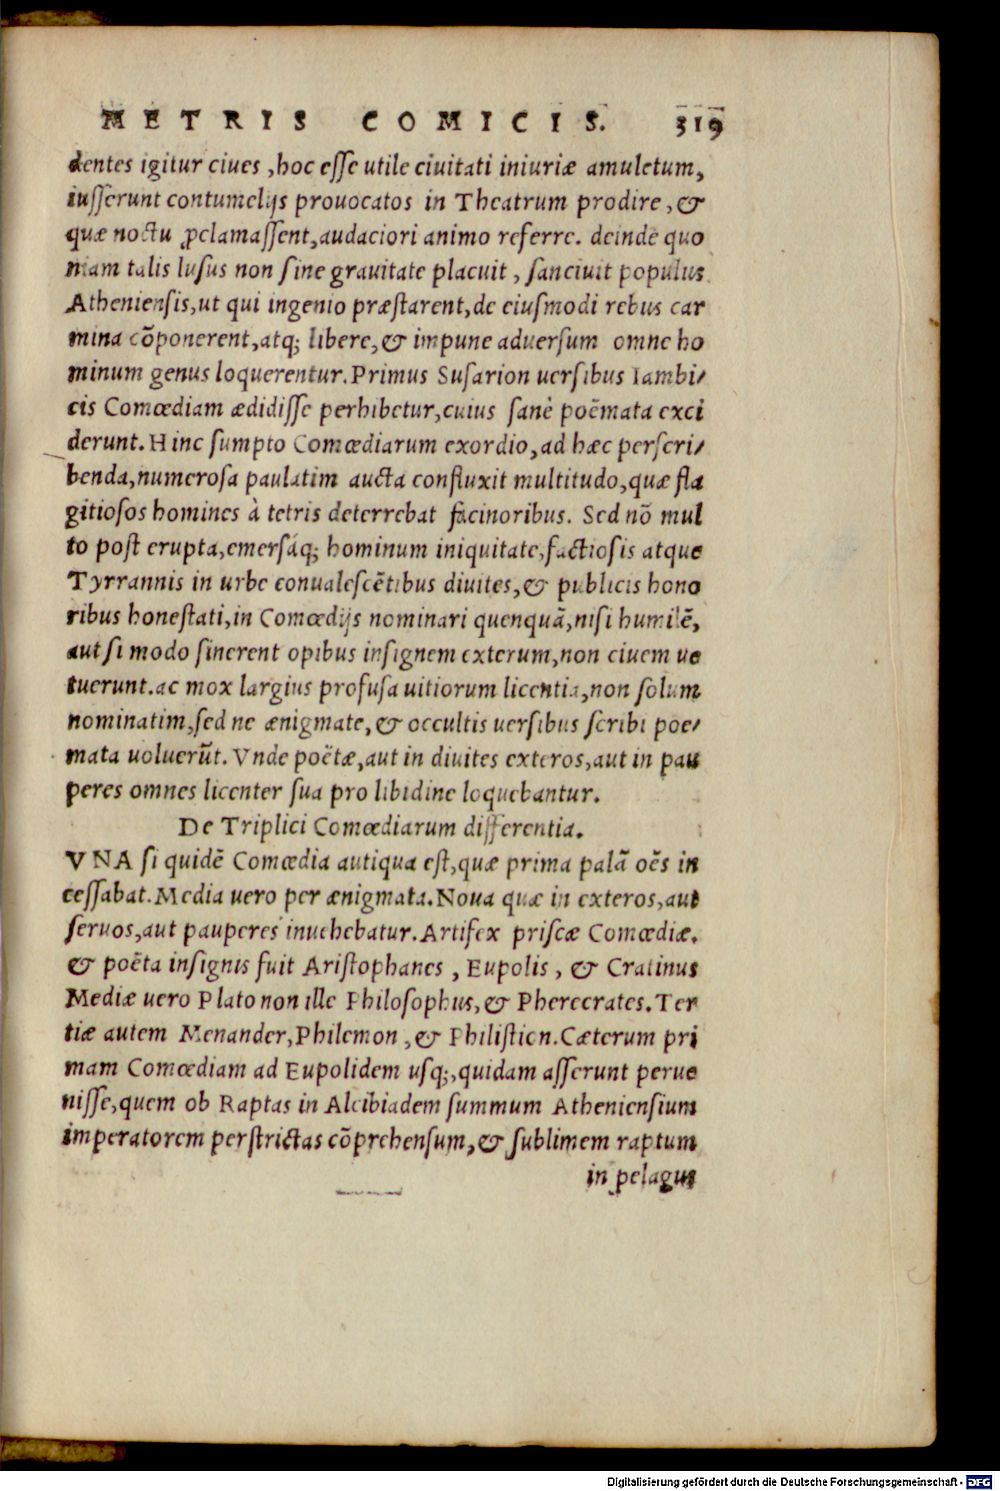 METRIS COMICIS. 319
dentes igitur ciues, hoc esse utile ciuitati iniuriæ amuletum,
iusserunt contumelijs prouocatos in Theatrum prodire, &
quæ noctu ꝓclamassent, audaciori animo referre. deinde quo
niam talis lusus non sine grauitate placuit, sanciuit populus
Atheniensis, ut qui ingenio præstarent, de eiusmodi rebus car
mina cōponerent, atq; libere, & impune aduersum omne ho
minum genus loquerentur. Primus Susarion uersibus Iambi/
cis Comœdiam ædidisse perhibetur, cuius sanè poëmata exci
derunt. Hinc sumpto Comœdiarum exordio, ad hæc perscri/
benda, numerosa paulatim aucta confluxit multitudo, quæ fla
gitiosos homines à tetris deterrebat facinoribus. Sed nō mul
to post erupta, emersáq; hominum iniquitate, factiosis atque
Tyrrannis in urbe conualescētibus diuites, & publicis hono
ribus honestati, in Comœdijs nominari quenquā, nisi humilē,
aut si modo sinerent opibus insignem exterum, non ciuem ue
tuerunt. ac mox largius profusa uitiorum licentia, non solum
nominatim, sed ne ænigmate, & occultis uersibus scribi poe/
mata uoluerūt. Vnde poëtæ, aut in diuites exteros, aut in pau
peres omnes licenter sua pro libidine loquebantur.
De Triplici Comœdiarum differentia.
VNA si quidē Comœdia antiqua est, quæ prima palā oēs in
cessabat. Media uero per ænigmata. Noua quæ in exteros, aut
seruos, aut pauperes inuehebatur. Artifex priscæ Comœdiæ.
& poëta insignis fuit Aristophanes, Eupolis, & Cratinus
Mediæ uero Plato non ille Philosophus, & Pherecrates. Ter
tiæ autem Menander, Philemon, & Philistion. Cæterum pri
mam Comœdiam ad Eupolidem usq;, quidam asserunt perue
nisse, quem ob Raptas in Alcibiadem summum Atheniensium
imperatorem perstrictas cōprehensum, & sublimem raptum
in pelagus
Digitalisierung gefördert durch die Deutsche Forschungsgemeinschaft - DFG